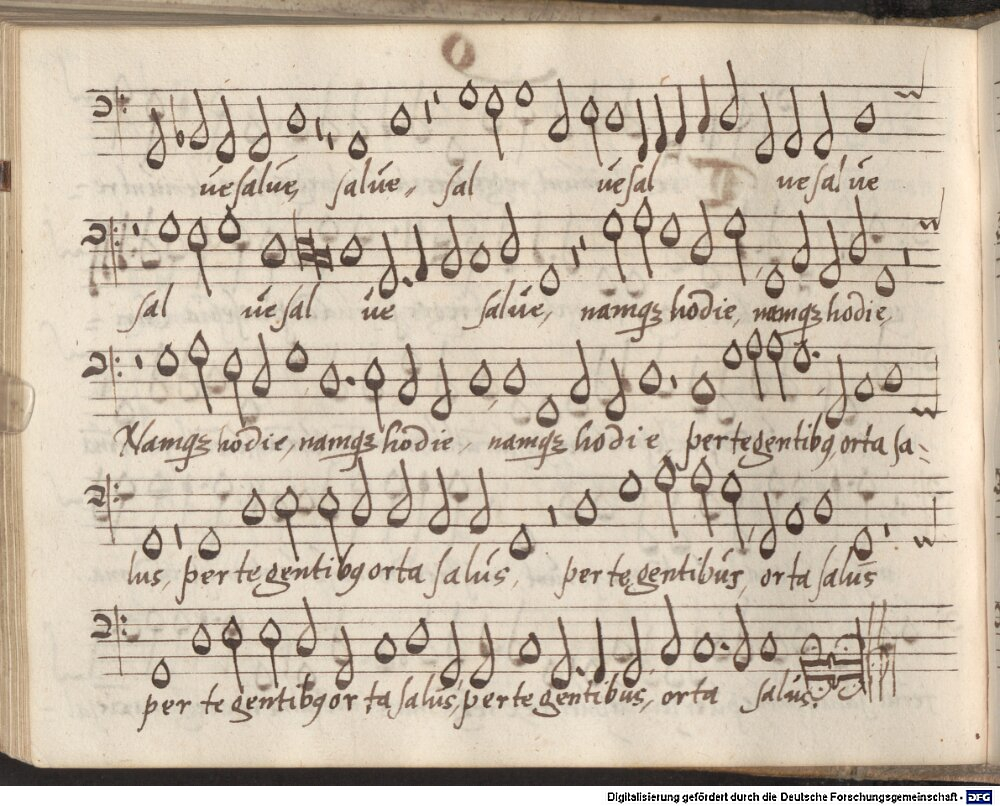 ue salue, salue, sal ue sal ue sal ue
sal ue sal ue salue, namqꝫ hodie, namqꝫ hodie,
Namqꝫ hodie, namqꝫ hodie, namqꝫ hodie, per te gentibꝰ orta sa-
lus, per te gentibꝰ orta salus, per te gentibus, orta salus
per te gentibꝰ orta salus, per te gentibus, orta salus.
Digitalisierung gefördert durch die Deutsche Forschungsgemeinschaft - DFG